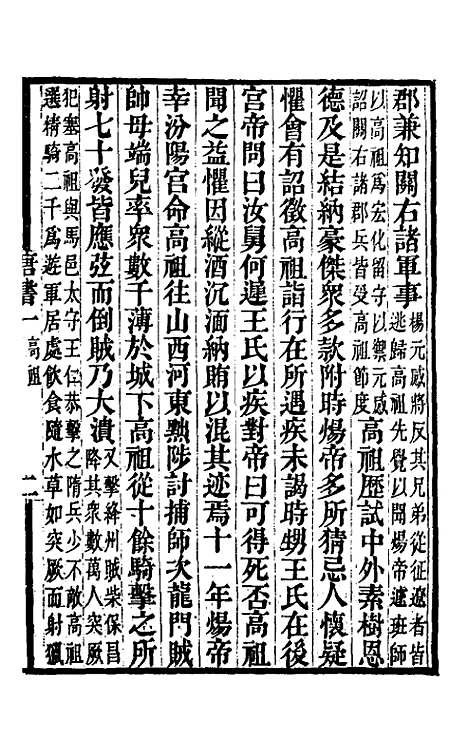 郡兼知關右諸軍事楊元感將反其兄弟從征遼者皆逃歸高祖先覺以聞煬帝遽班師
以高祖爲宏化留守以禦元感詔關右諸郡兵皆受高祖節度高祖歷試中外素樹恩
德及是結納豪傑衆多款附時煬帝多所猜忌人懷疑
懼會有詔徵高祖詣行在所遇疾未謁時甥王氏在後
宮帝問曰汝舅何遲王氏以疾對帝曰可得死否高祖
聞之益懼因縱酒沉湎納賄以混其迹焉十一年煬帝
幸汾陽宮命高祖往山西河東黜陟討捕師次龍門賊
帥母端兒率衆數千薄於城下高祖從十餘騎擊之所
射七十發皆應弦而倒賊乃大潰又擊絳州賊柴保昌降其衆數萬人突厥
犯塞高祖與馬邑太守王仁恭擊之隋兵少不敵高祖選精騎二千爲遊軍居處飲食隨水草如突厥而射獵
唐書一 高祖 二